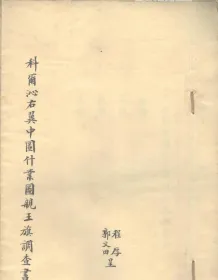 科爾沁右翼中圖什業圖親王旗調查書
程厚
郭文田 呈